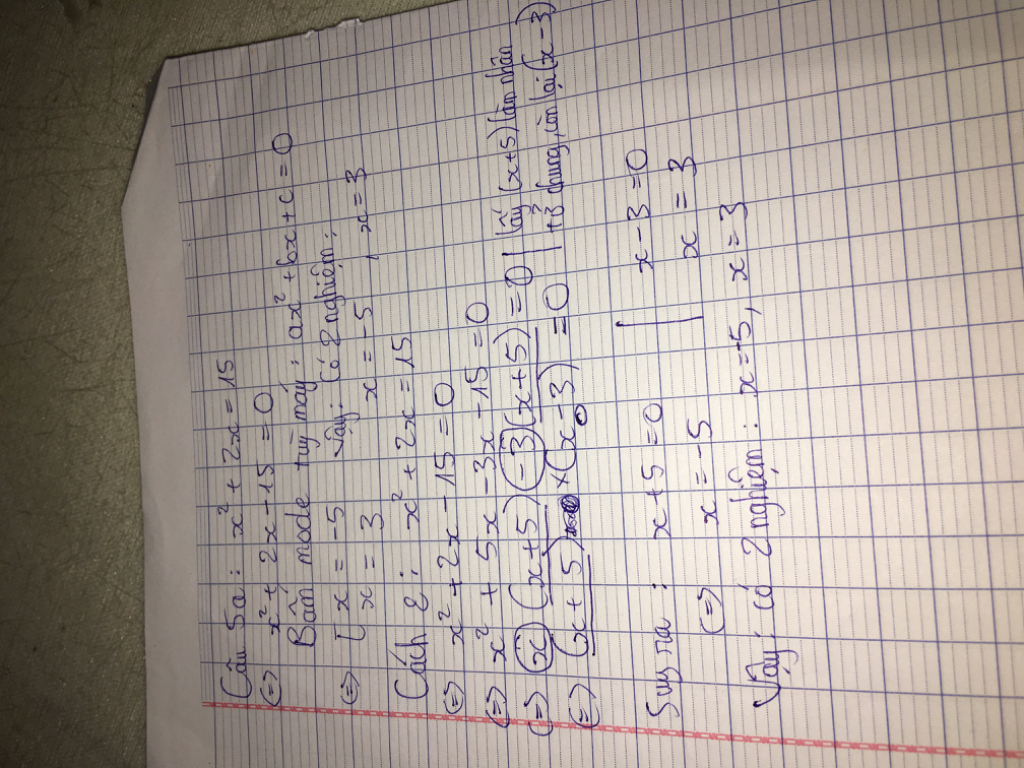 Câu 5a: x² + 2x = 15
(=) x² + 2x - 15 = 0
Bấm mode tuỳ máy: ax² + bx + c = 0
(=) [ x = -5 Vậy: Có 2 nghiệm:
x = 3 x = -5, x = 3
Cách 2: x² + 2x = 15
(=) x² + 2x - 15 = 0
(=) x² + 5x - 3x - 15 = 0
(=) x (x + 5) - 3 (x + 5) = 0 | lấy (x+5) làm nhân
(=) (x + 5) × (x - 3) = 0 | tử chung, còn lại (x - 3)
Suy ra: x + 5 = 0 | x - 3 = 0
(=) x = -5 | x = 3
Vậy: có 2 nghiệm: x = -5, x = 3